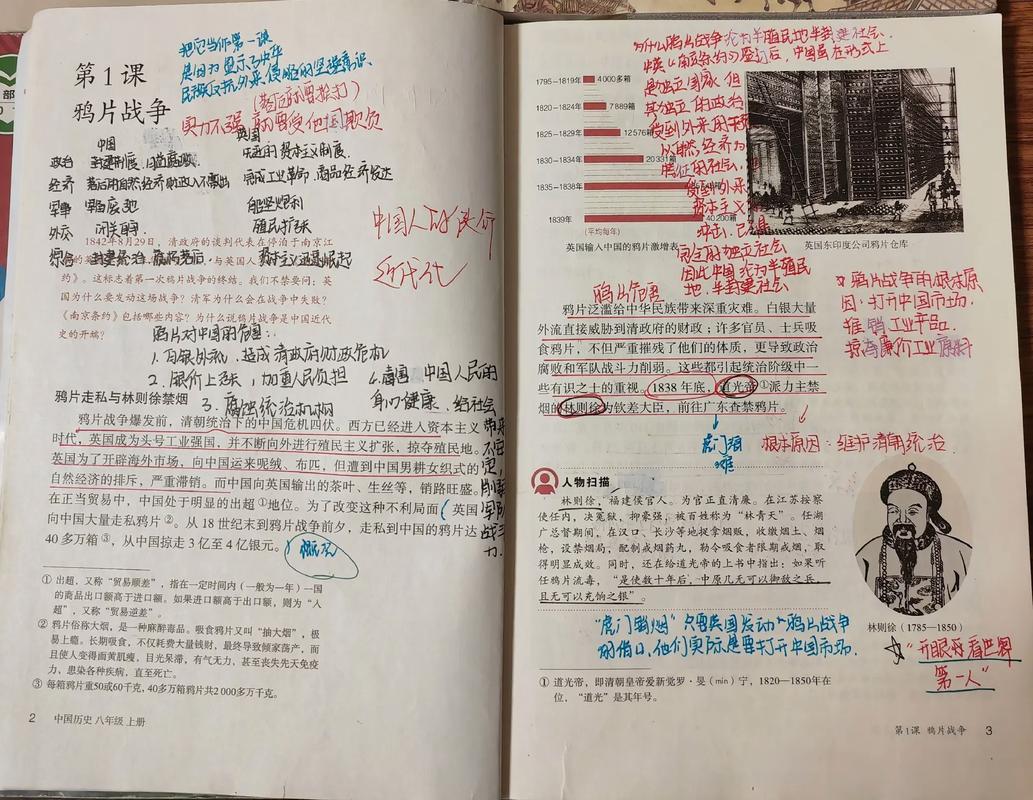 第1课
鸦片战争
把它当作第一课
是因为显示了中华
民族反抗外来侵略的坚强意识
(落后就要挨打)
实力不强 就要受他国欺负
中国
英国
政治 封建制度、日益腐败 先进的资本主义制度.
经济 落后的自然经济 财政入不敷出 完成工业革命 商品经济发达
军事 军备废弛 船坚炮利
外交 闭关自守 殖民扩张
综合 封建统治 腐朽落后 资本主义迅速崛起
中国人民的
近代化
1842年8月29日,清政府的谈判代表在停泊于南京江
与英国人
约》。这标志着第一次鸦片战争的终结。我们不禁要问:英
国为什么要发动这场战争?清军为什么会在战争中失败?
《南京条约》包括哪些内容?为什么说鸦片战争是中国近代
史的开端?
鸦片对中国的危害:
1.白银外流,造成清政府财政危机
2.银价上涨,加重人民负担
3.腐蚀统治机构
4.毒害中国人民的
身心健康.
鸦片走私与林则徐禁烟
鸦片战争爆发前,清朝统治下的中国危机四伏。西方已经进入资本主义
时代,英国成为头号工业强国,并不断向外进行殖民主义扩张,掠夺殖民地。
英国为了开辟海外市场,向中国运来呢绒、布匹,但遭到中国男耕女织式的
自然经济的排斥,严重滞销。而中国向英国输出的茶叶、生丝等,销路旺盛。
在正当贸易中,中国处于明显的出超①地位。为了改变这种不利局面,英国
向中国大量走私鸦片②。从18世纪末到鸦片战争前夕,走私到中国的鸦片达
40多万箱③,从中国掠走3亿至4亿银元。
概况
① 出超,又称“贸易顺差”,指在一定时间内(一般为一年)一国
的商品出口额高于进口额。如果进口额高于出口额,则为“入
超”,又称“贸易逆差”。
② 鸦片俗称大烟,是一种麻醉毒品。吸食鸦片又叫“抽大烟”,极
易上瘾。长期吸食,不仅耗费大量钱财,最终导致倾家荡产,而
且使人变得面黄肌瘦,目光呆滞,有气无力,甚至丧失先天免疫
力,患染各种疾病,直至死亡。
③ 每箱鸦片重50或60千克,40多万箱鸦片共2 000多万千克。
2 中国历史 八年级 上册
为什么鸦片战争沦为半殖民地半封建社会.
《南京条约》签订后,中国虽在形式上
是独立国家,但
其独立的政治
受到外来的干预
以自然经济为
特征的社会.
受到外来
资本主义
冲击,已经
完全的独立社会
因此中国沦为半殖民
地.半封建社会
1795–1819年 4 000多箱
1820–1824年 7 889箱
1825–1829年 12 576箱
1830–1834年 20 331箱
1835–1838年
1839年 40 200箱
(平均每年)
英国输入中国的鸦片激增表
英国东印度公司鸦片仓库
鸦片危害
鸦片战争的根本原
因:打开中国市场.
推销工业产品.
掠夺廉价工业原料
鸦片泛滥给中华民族带来深重灾难。白银大量
外流直接威胁到清政府的财政;许多官员、士兵吸
食鸦片,不但严重摧残了他们的体质,更导致政治
腐败和军队战斗力削弱。这些都引起统治阶级中一
些有识之士的重视。1838年底,道光帝①派力主禁
烟的林则徐为钦差大臣,前往广东查禁鸦片。
虎门销
烟
根本原因:维护清朝统治
人物扫描
林则徐,福建侯官人。为官正直清廉。在江苏按察
使任内,决冤狱,抑豪强,被百姓称为“林青天”。任湖
广总督期间,在汉口、长沙等地捉拿烟贩,收缴烟土、烟
枪,设禁烟局,配制戒烟药丸,勒令吸食者限期戒烟,取
得明显成效。同时,还在给道光帝的上书中指出:如果听
任鸦片流毒,“是使数十年后,中原几无可以御敌之兵,
且无可以充饷之银”。
林则徐(1785—1850)
“虎门销烟”只是英国发动“鸦片战争
的借口,他们实际是要打开中国市场.
“开眼看世界
第一人”
① 道光帝,即清朝皇帝爱新觉罗·旻(mín)宁,1820—1850年在
位,“道光”是其年号。
第1课 鸦片战争 3